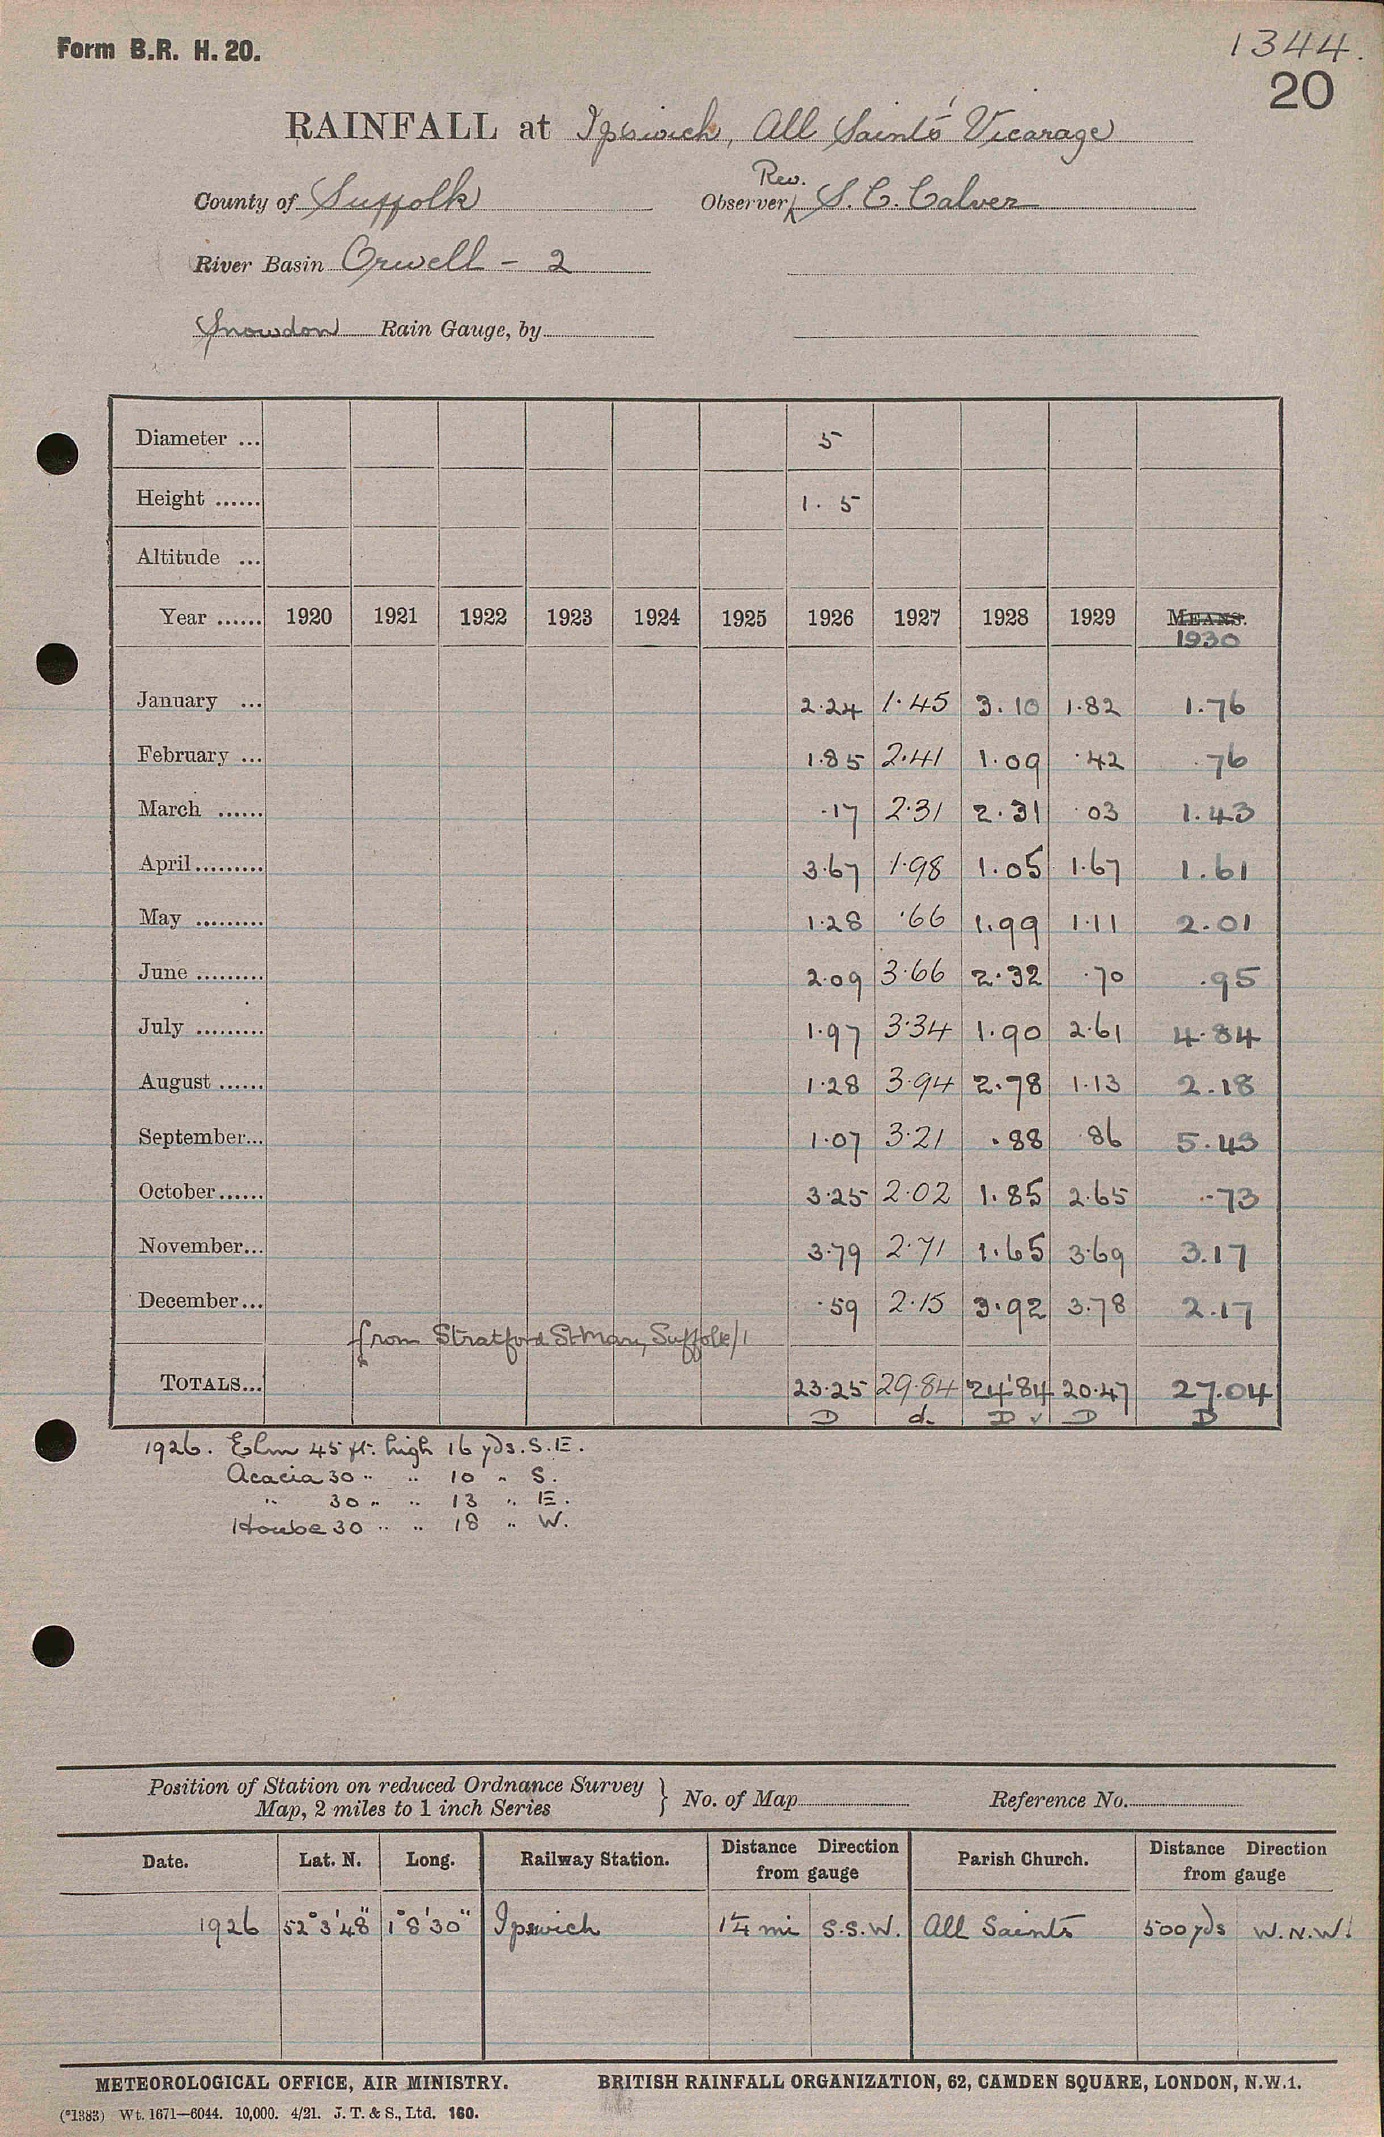 Form B.R. H. 20.
1344.
20
RAINFALL at Ipswich, All Saints' Vicarage
County of Suffolk
Rev.
Observer S. C. Calver
River Basin Orwell - 2
Snowdon Rain Gauge, by
Diameter ... 5
Height ...... 1. 5
Altitude ...
Year ...... 1920 1921 1922 1923 1924 1925 1926 1927 1928 1929 MEANS.
1930
January ... 2.24 1.45 3.10 1.82 1.76
February ... 1.85 2.41 1.09 .42 .76
March ...... .17 2.31 2.31 .03 1.43
April ......... 3.67 1.98 1.05 1.67 1.61
May ......... 1.28 .66 1.99 1.11 2.01
June ......... 2.09 3.66 2.32 .70 .95
July ......... 1.97 3.34 1.90 2.61 4.84
August ...... 1.28 3.94 2.78 1.13 2.18
September... 1.07 3.21 .88 .86 5.43
October...... 3.25 2.02 1.85 2.65 .73
November... 3.79 2.71 1.65 3.69 3.17
December... .59 2.15 3.92 3.78 2.17
from Stratford St Mary, Suffolk/1
TOTALS... 23.25 29.84 24.84 20.47 27.04
D d. D v D D
1926. Elm 45 ft. high 16 yds. S.E.
Acacia 30 " " 10 " S.
" 30 " " 13 " E.
House 30 " " 18 " W.
Position of Station on reduced Ordnance Survey
Map, 2 miles to 1 inch Series } No. of Map Reference No.
Date. Lat. N. Long. Railway Station. Distance Direction from gauge Parish Church. Distance Direction from gauge
1926 52° 3' 48" 1° 8' 30" Ipswich 1¼ mi S.S.W. All Saints 500 yds W.N.W.
METEOROLOGICAL OFFICE, AIR MINISTRY. BRITISH RAINFALL ORGANIZATION, 62, CAMDEN SQUARE, LONDON, N.W.1.
(*1383) Wt. 1671—6044. 10,000. 4/21. J. T. & S., Ltd. 160.